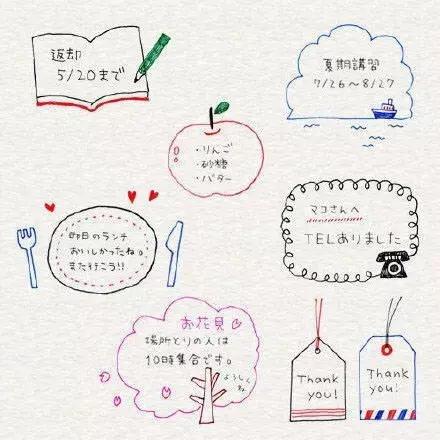 返却
5/20まで
夏期講習
7/26～8/27
・りんご
・砂糖
・バター
昨日のランチ
おいしかったね。
また行こう!!
マコさんへ
TELありました
お花見
場所とりの人は
10時集合です。
よろしくね
Thank
you!
Thank
you!